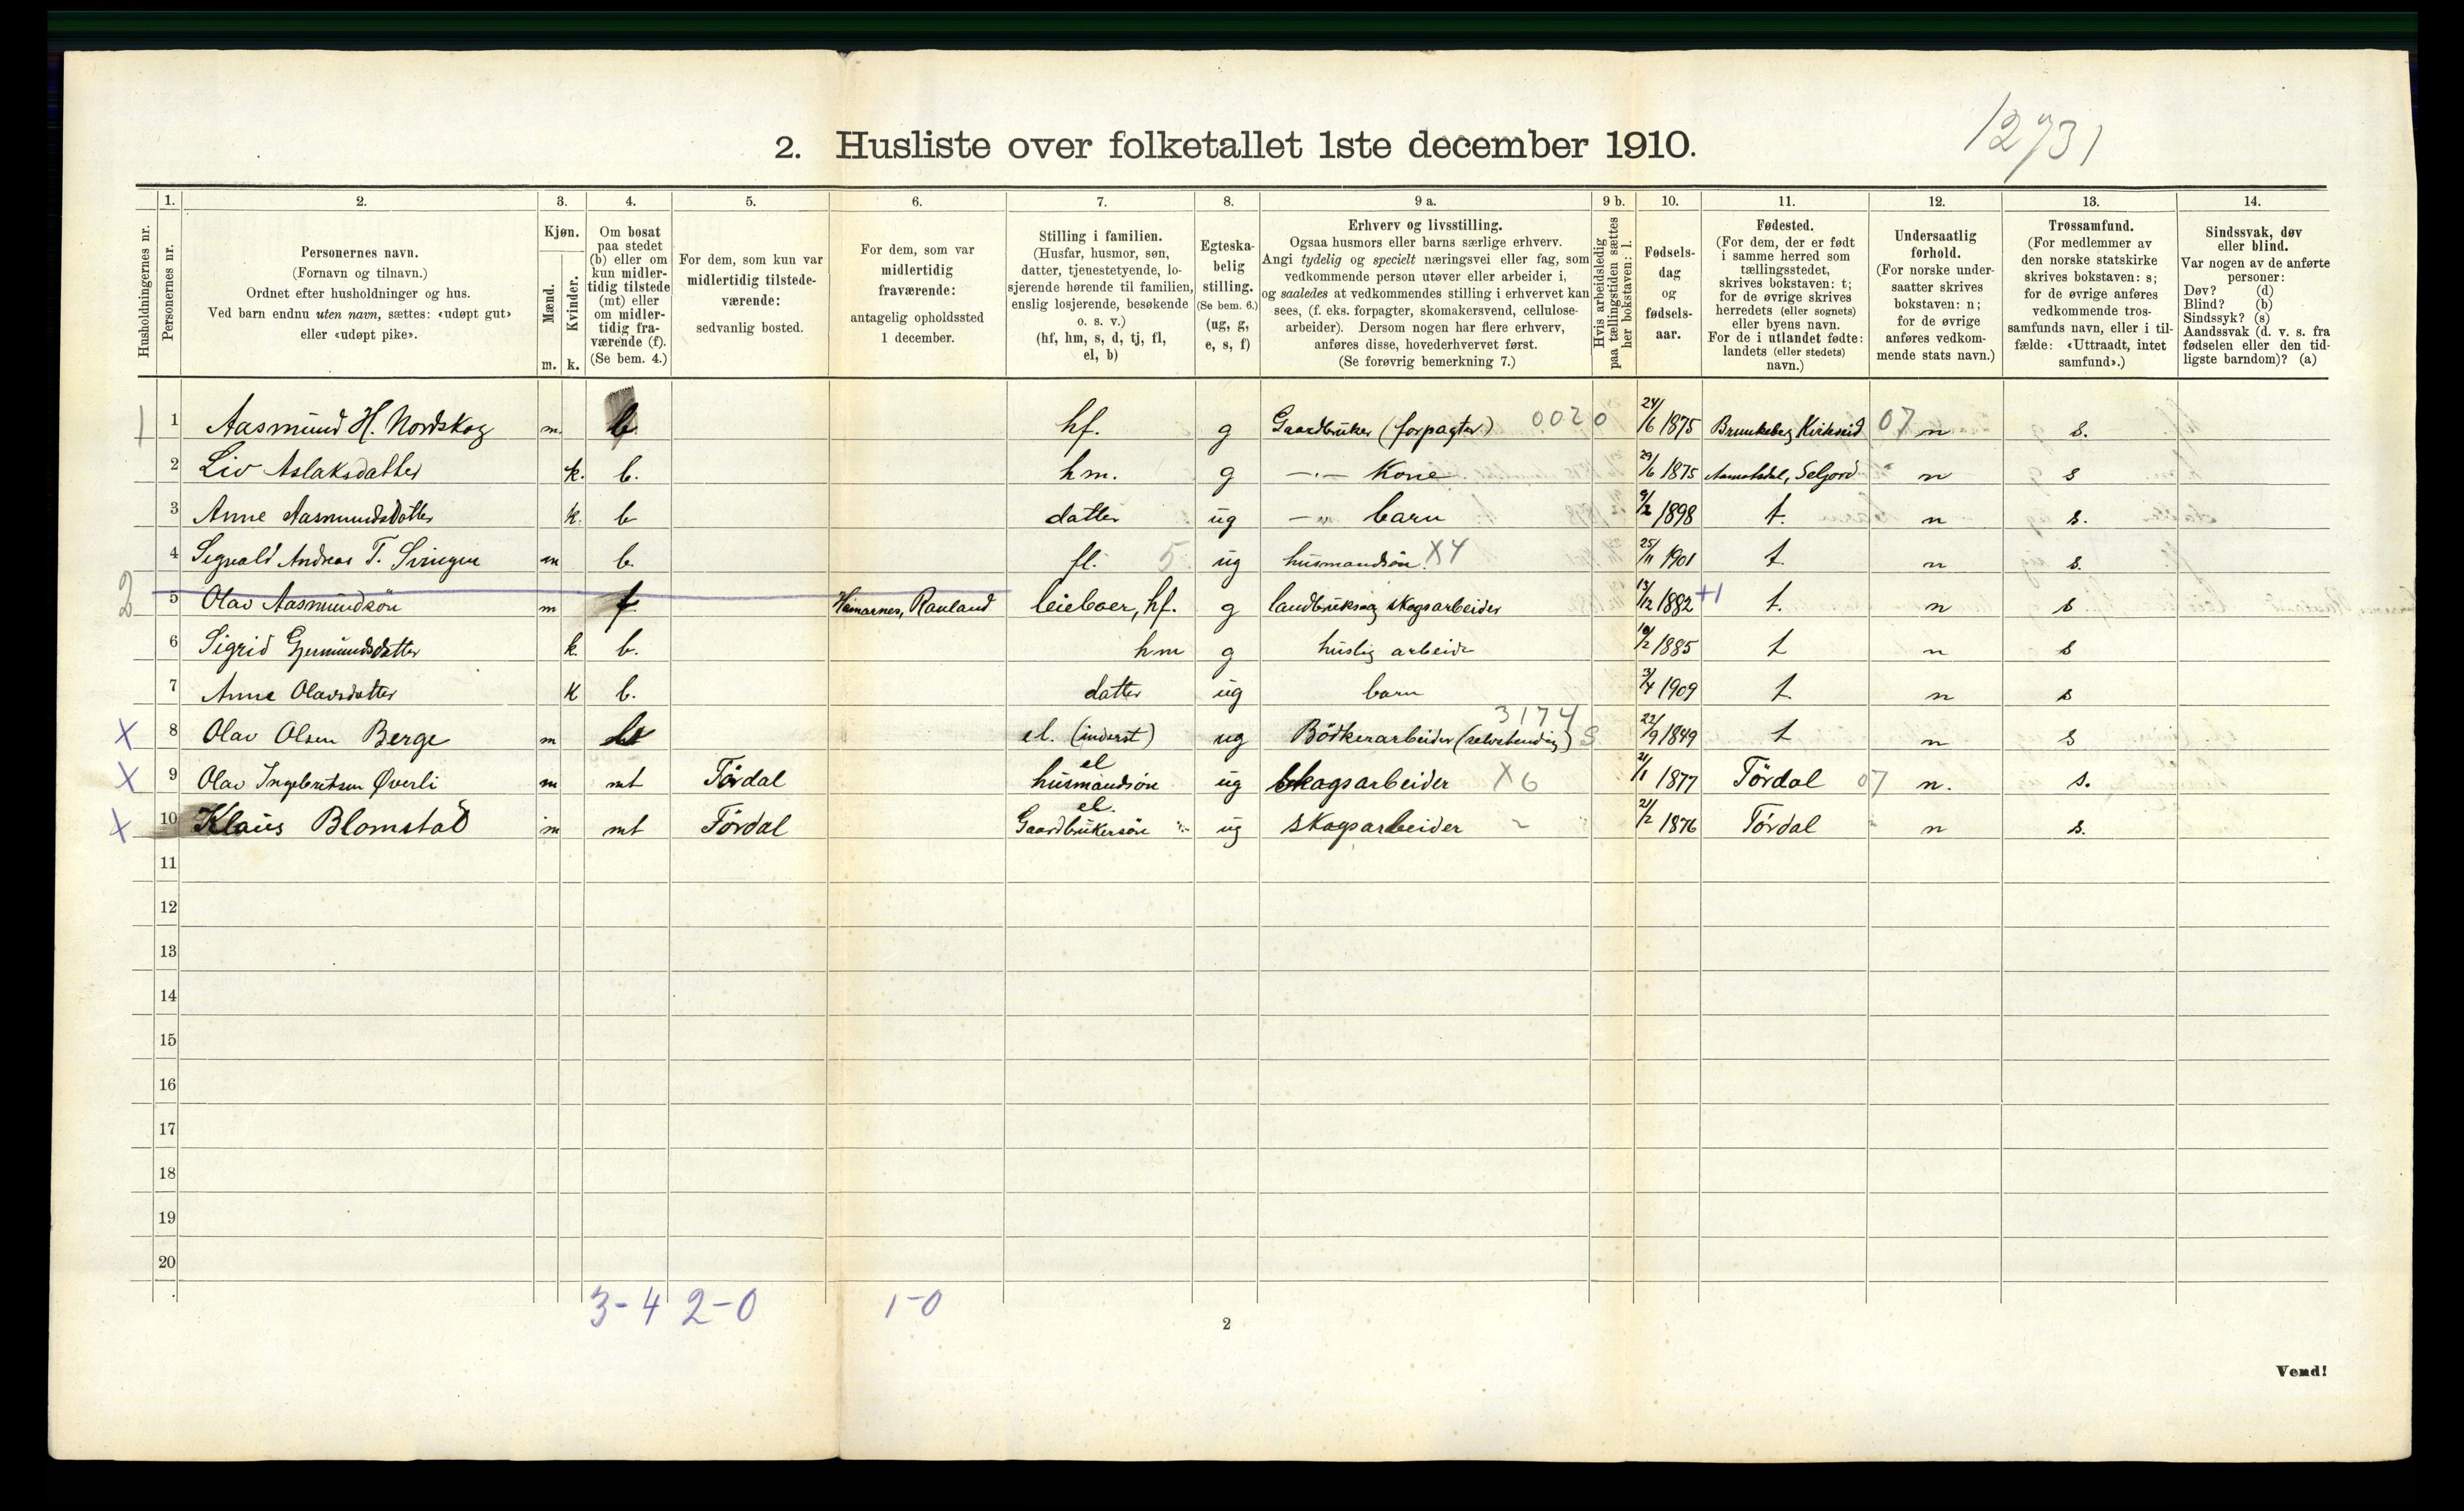 12731
2. Husliste over folketallet 1ste december 1910.
Husholdningernes nr.
1. Personernes nr.
2. Personernes navn.
(Fornavn og tilnavn.)
Ordnet efter husholdninger og hus.
Ved barn endnu uten navn, sættes: «udøpt gut»
eller «udøpt pike».
3. Kjøn.
Mænd. m.
Kvinder. k.
4. Om bosat
paa stedet
(b) eller om
kun midler-
tidig tilstede
(mt) eller
om midler-
tidig fra-
værende (f).
(Se bem. 4.)
5. For dem, som kun var
midlertidig tilstede-
værende:
sedvanlig bosted.
6. For dem, som var
midlertidig
fraværende:
antagelig opholdssted
1 december.
7. Stilling i familien.
(Husfar, husmor, søn,
datter, tjenestetyende, lo-
sjerende hørende til familien,
enslig losjerende, besøkende
o. s. v.)
(hf, hm, s, d, tj, fl,
el, b)
8. Egteska-
belig
stilling.
(Se bem. 6.)
(ug, g,
e, s, f)
9 a. Erhverv og livsstilling.
Ogsaa husmors eller barns særlige erhverv.
Angi tydelig og specielt næringsvei eller fag, som
vedkommende person utøver eller arbeider i,
og saaledes at vedkommendes stilling i erhvervet kan
sees, (f. eks. forpagter, skomakersvend, cellulose-
arbeider). Dersom nogen har flere erhverv,
anføres disse, hovederhvervet først.
(Se forøvrig bemerkning 7.)
9 b. Hvis arbeidsledig
paa tællingstiden sættes
her bokstaven: l.
10. Fødsels-
dag
og
fødsels-
aar.
11. Fødested.
(For dem, der er født
i samme herred som
tællingsstedet,
skrives bokstaven: t;
for de øvrige skrives
herredets (eller sognets)
eller byens navn.
For de i utlandet fødte:
landets (eller stedets)
navn.)
12. Undersaatlig
forhold.
(For norske under-
saatter skrives
bokstaven: n;
for de øvrige
anføres vedkom-
mende stats navn.)
13. Trossamfund.
(For medlemmer av
den norske statskirke
skrives bokstaven: s;
for de øvrige anføres
vedkommende tros-
samfunds navn, eller i til-
fælde: «Uttraadt, intet
samfund».)
14. Sindssvak, døv
eller blind.
Var nogen av de anførte
personer:
Døv? (d)
Blind? (b)
Sindssyk? (s)
Aandssvak (d. v. s. fra
fødselen eller den tid-
ligste barndom)? (a)
1 1 Aasmund H. Nordskog m. b. hf. g Gaardbruker (forpagter) 0020 24/6 1875 Brunkeberg Kviteseid 07 n s.
2 Liv Aslaksdatter k. b. hm. g —"— Kone 29/6 1875 Aamotsdal, Seljord n s
3 Anne Aasmundsdatter k. b datter ug —"— barn 9/2 1898 t. n s.
4 Signald Andreas T. Svingen m b. fl. 5 ug husmandsøn X4 25/11 1901 t. n s.
2 5 Olav Aasmundsön m f Haanarnes, Rauland leieboer, hf. g landbruks og skogsarbeider 13/12 1882 +1 t. n s
6 Sigrid Gjermundsdatter k. b. hm g huslig arbeide 10/2 1885 t n s
7 Anne Olavsdatter k b. datter ug barn 3/4 1909 t. n s
X 8 Olav Olsen Berge m b el. (inderst) ug Bödkerarbeider (selvstendig) 3174 S 22/9 1849 t n s
X 9 Olav Ingebretsen Øverli m mt Tördal el husmandsön ug Skogsarbeider X6 21/1 1877 Tördal 07 n. s.
X 10 Klaus Blomstad m mt Tördal el. Gaardbrukersön ug skogsarbeider 21/2 1876 Tördal n s.
11
12
13
14
15
16
17
18
19
20
3-4 2-0 1-0
2
Vend!